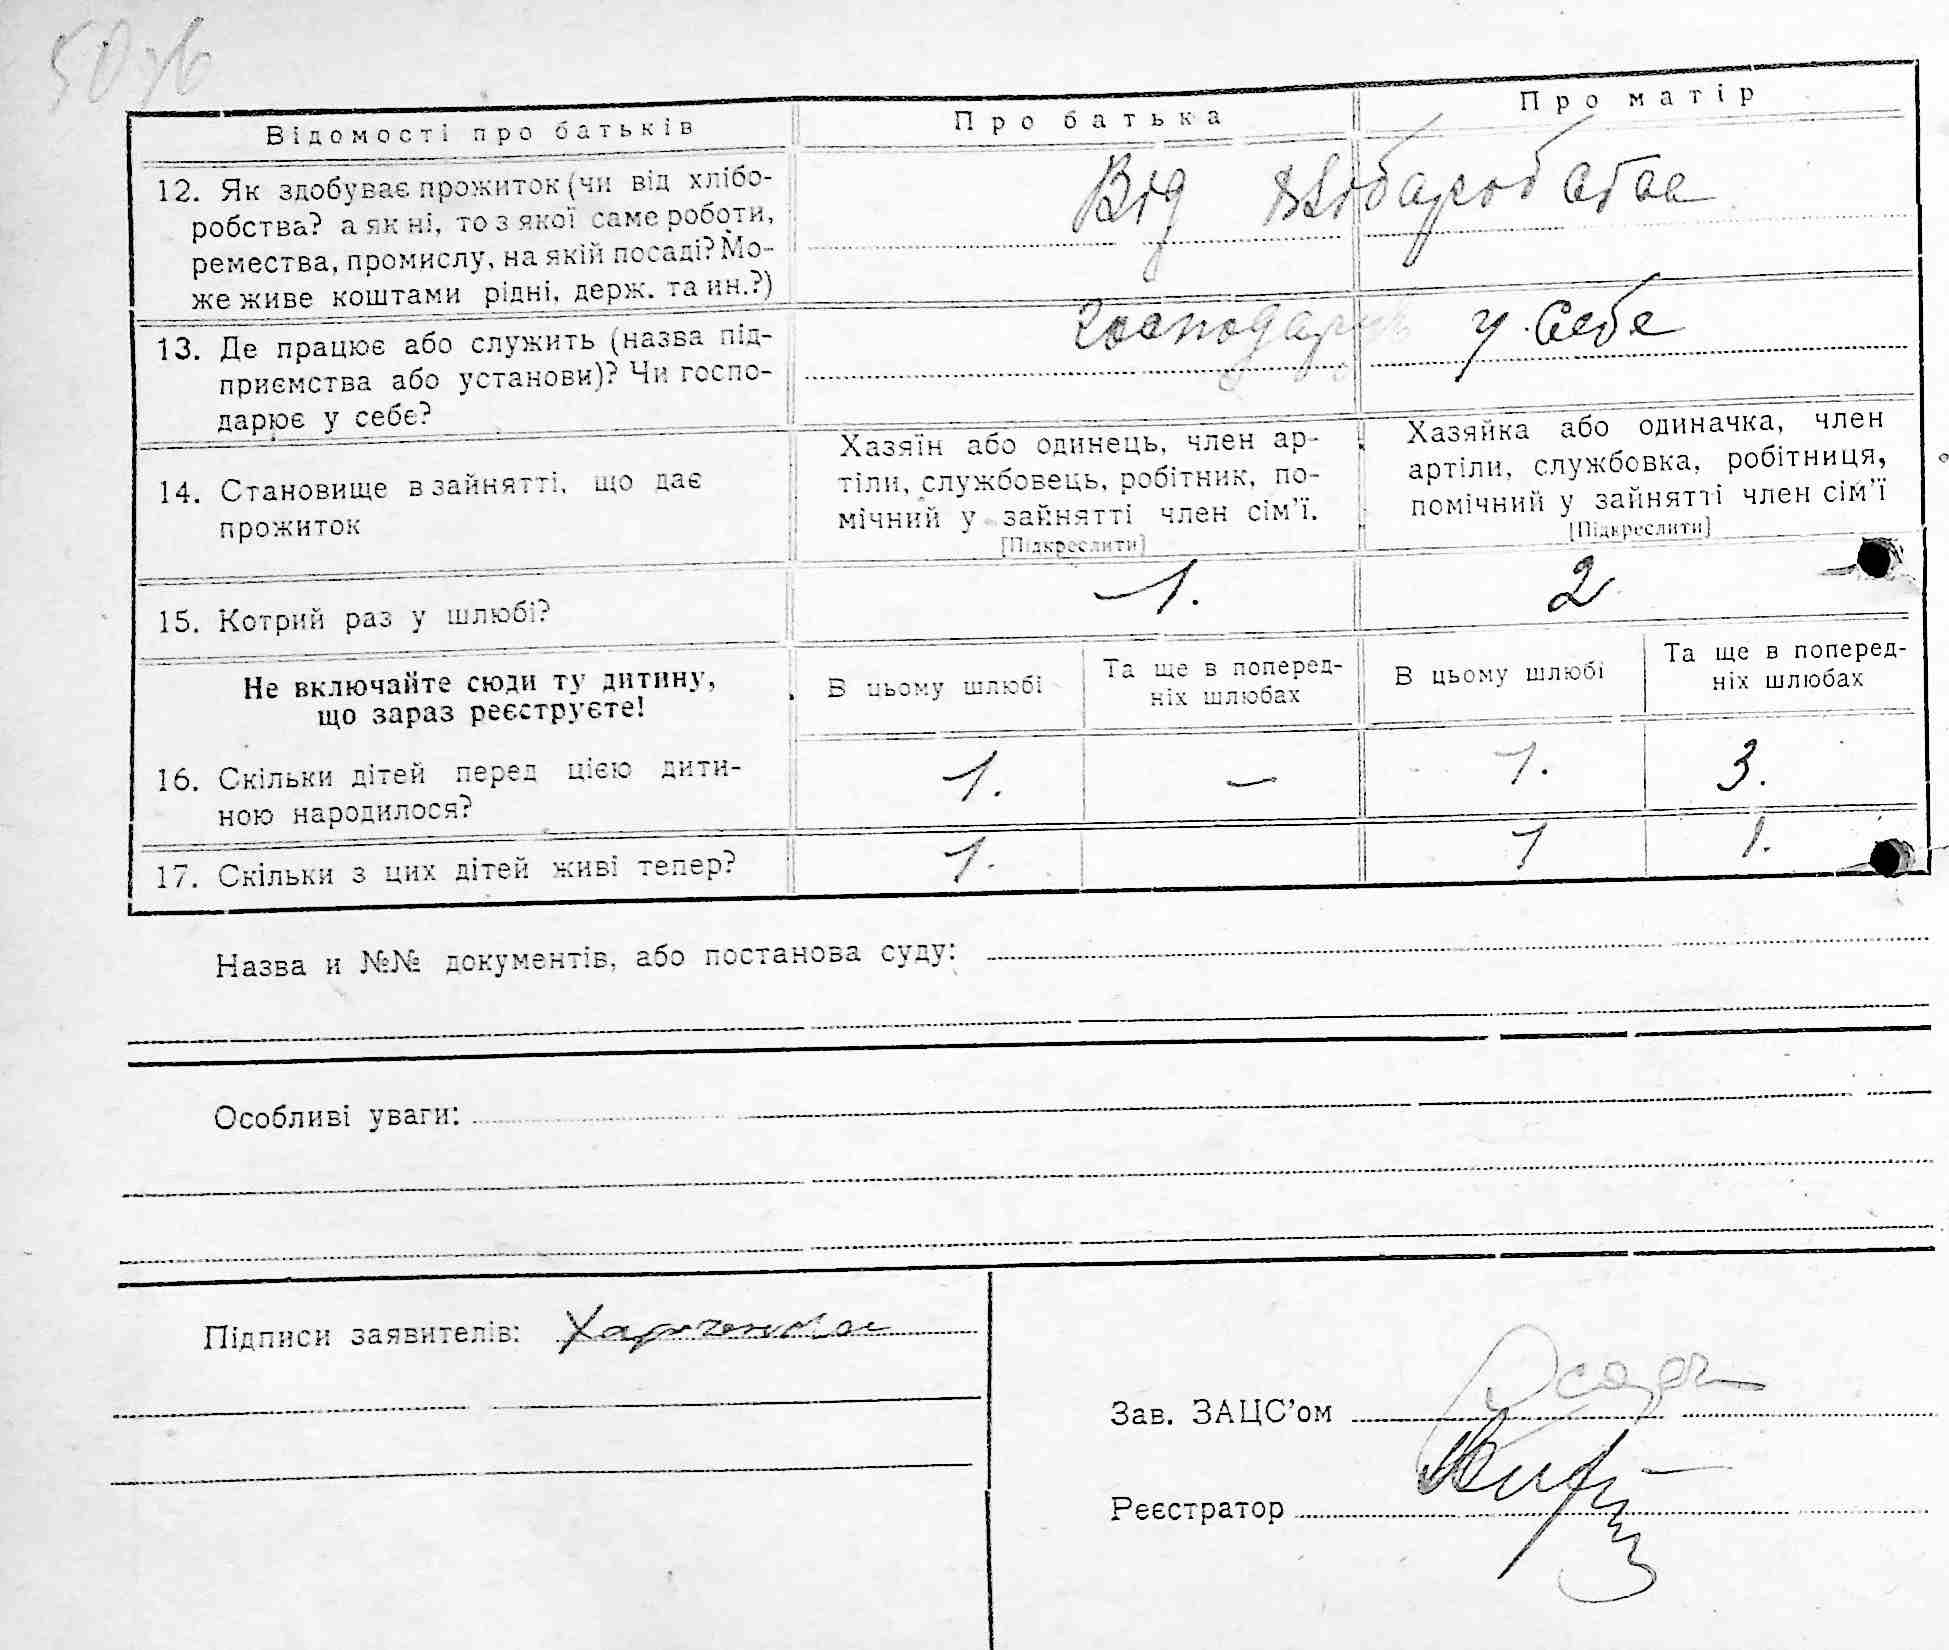 Відомості про батьків
Про батька
Про матір
12. Як здобуває прожиток (чи від хлібо-
робства? а як ні, то з якої саме роботи,
ремества, промислу, на якій посаді? Мо-
же живе коштами рідні, держ. та ин.?)
Від хліборобства
13. Де працює або служить (назва під-
приємства або установи)? Чи госпо-
дарює у себе?
господарує у себе
14. Становище в зайнятті, що дає
прожиток
Хазяїн або одинець, член ар-
тіли, службовець, робітник, по-
мічний у зайнятті член сім'ї.
[Підкреслити]
Хазяйка або одиначка, член
артіли, службовка, робітниця,
помічний у зайнятті член сім'ї
[Підкреслити]
15. Котрий раз у шлюбі?
1.
2
Не включайте сюди ту дитину,
що зараз реєструєте!
В цьому шлюбі
Та ще в поперед-
ніх шлюбах
В цьому шлюбі
Та ще в поперед-
ніх шлюбах
16. Скільки дітей перед цією дити-
ною народилося?
1. — 1. 3.
17. Скільки з цих дітей живі тепер?
1. 1 1.
Назва и №№ документів, або постанова суду:
Особливі уваги:
Підписи заявителів: Харченко
Зав. ЗАЦС'ом
Реєстратор